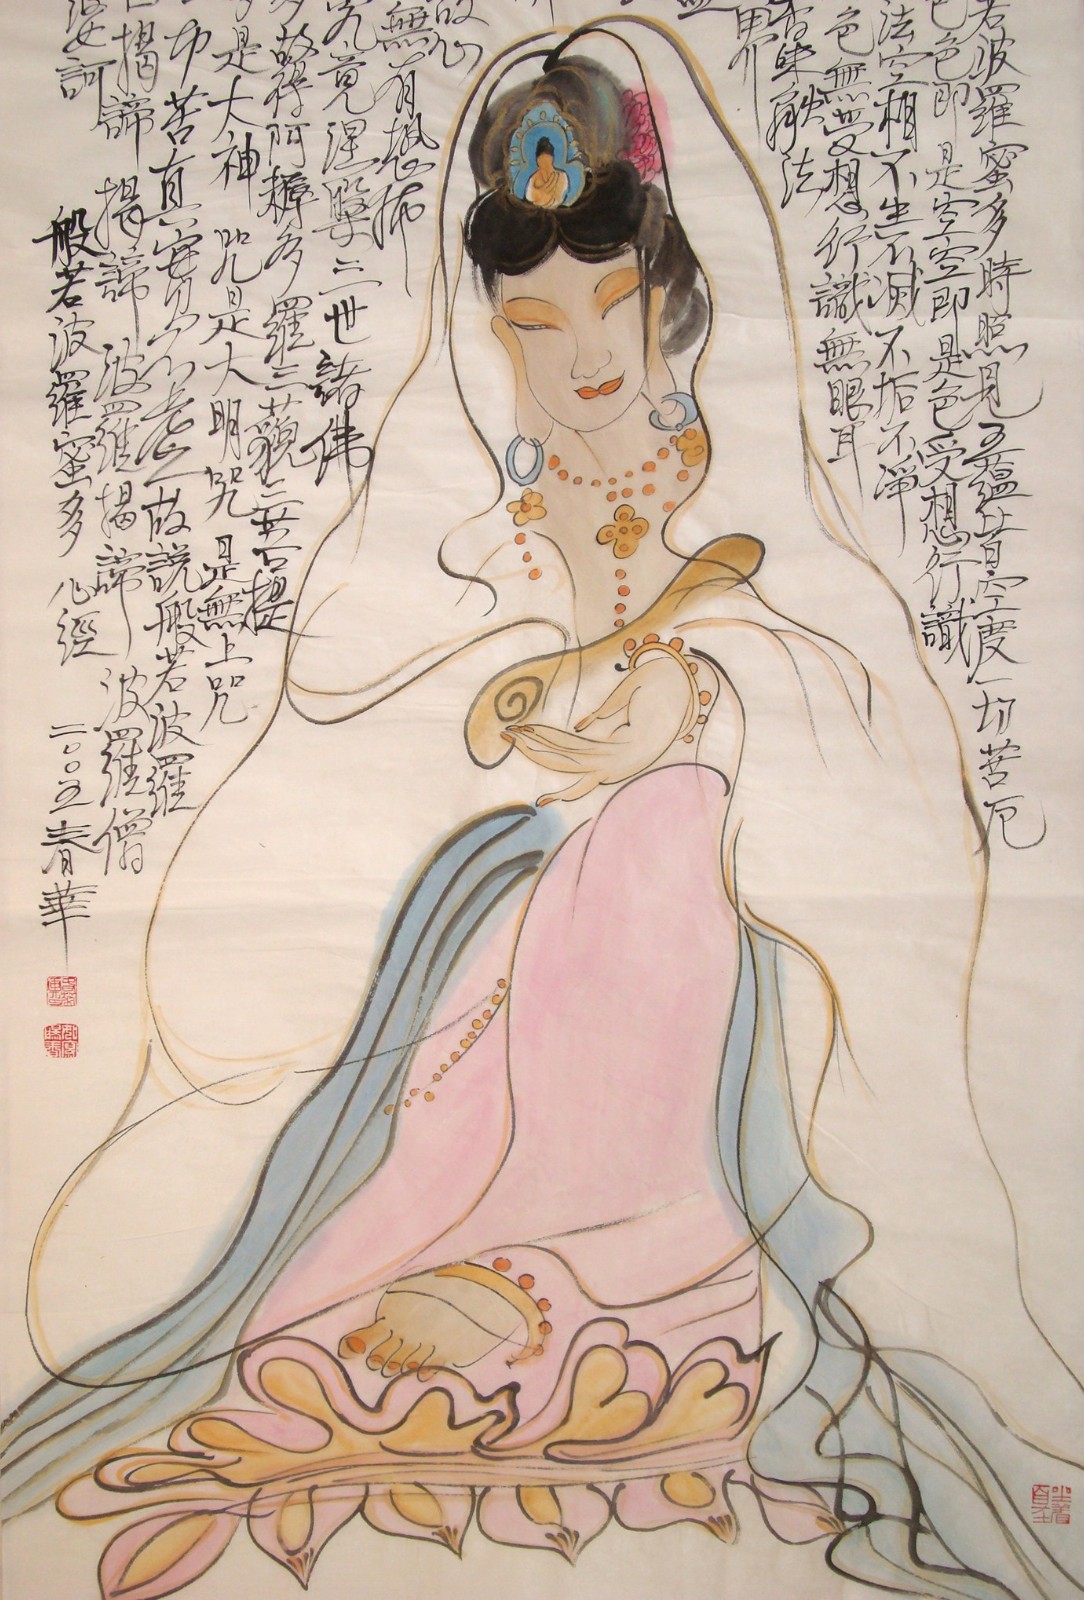 若波羅蜜多時照見五蘊皆空度一切苦厄
色色即是空空即是色受想行識
法空相不生不滅不垢不淨
色無受想行識無眼耳
香味觸法
界
故心
無有恐怖
究竟涅槃三世諸佛
多故得阿耨多羅三藐三菩提
是大神咒是大明咒是無上咒
切苦真實不虛故說般若波羅
揭諦揭諦波羅揭諦波羅僧
婆訶
般若波羅蜜多心經 二〇〇五春華